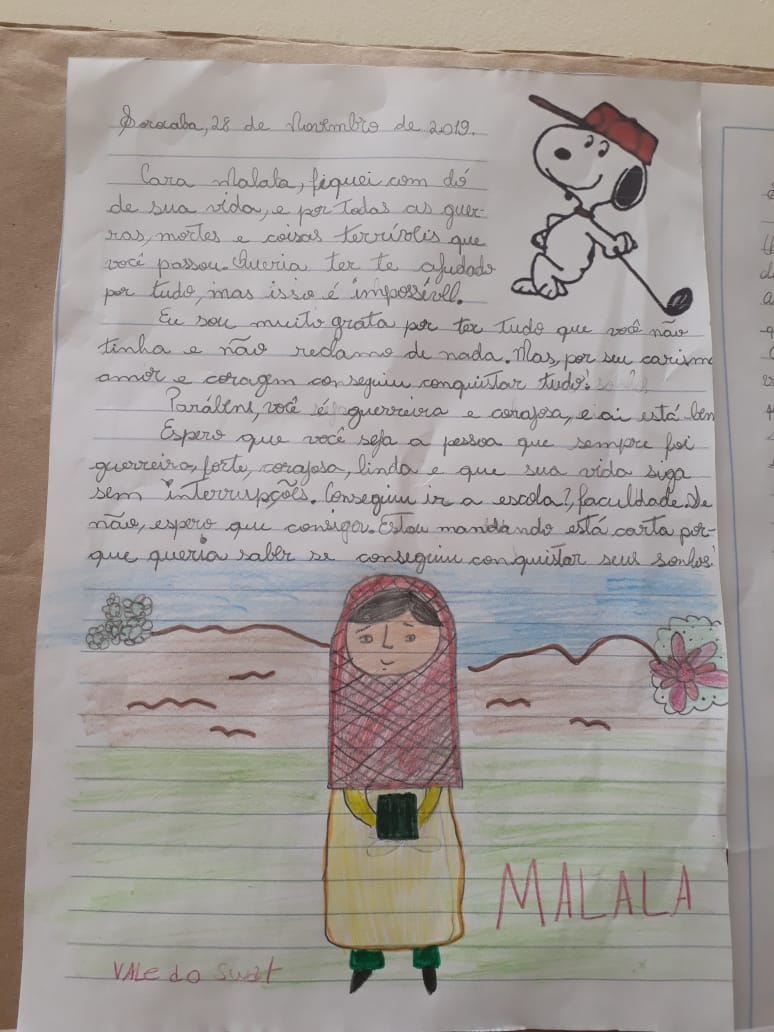 Sorocaba, 28 de Novembro de 2019.
Cara Malala, fiquei com dó
de sua vida, e por todas as guer-
ras, mortes e coisas terríveis que
você passou. Queria ter te ajudado
por tudo, mas isso é impossível.
Eu sou muito grata por ter tudo que você não
tinha e não reclamo de nada. Mas, por seu carism
amor e coragem conseguiu conquistar tudo!
Parábens, você é guerreira e corajosa, e ai está bem
Espero que você seja a pessoa que sempre foi
guerreira, forte, corajosa, linda e que sua vida siga
sem interrupções. Conseguiu ir a escola?, faculdade. Se
não, espero que consiga. Estou mandando está carta por-
que queria saber se conseguiu conquistar seus sonhos.
MALALA
VALE do Swat